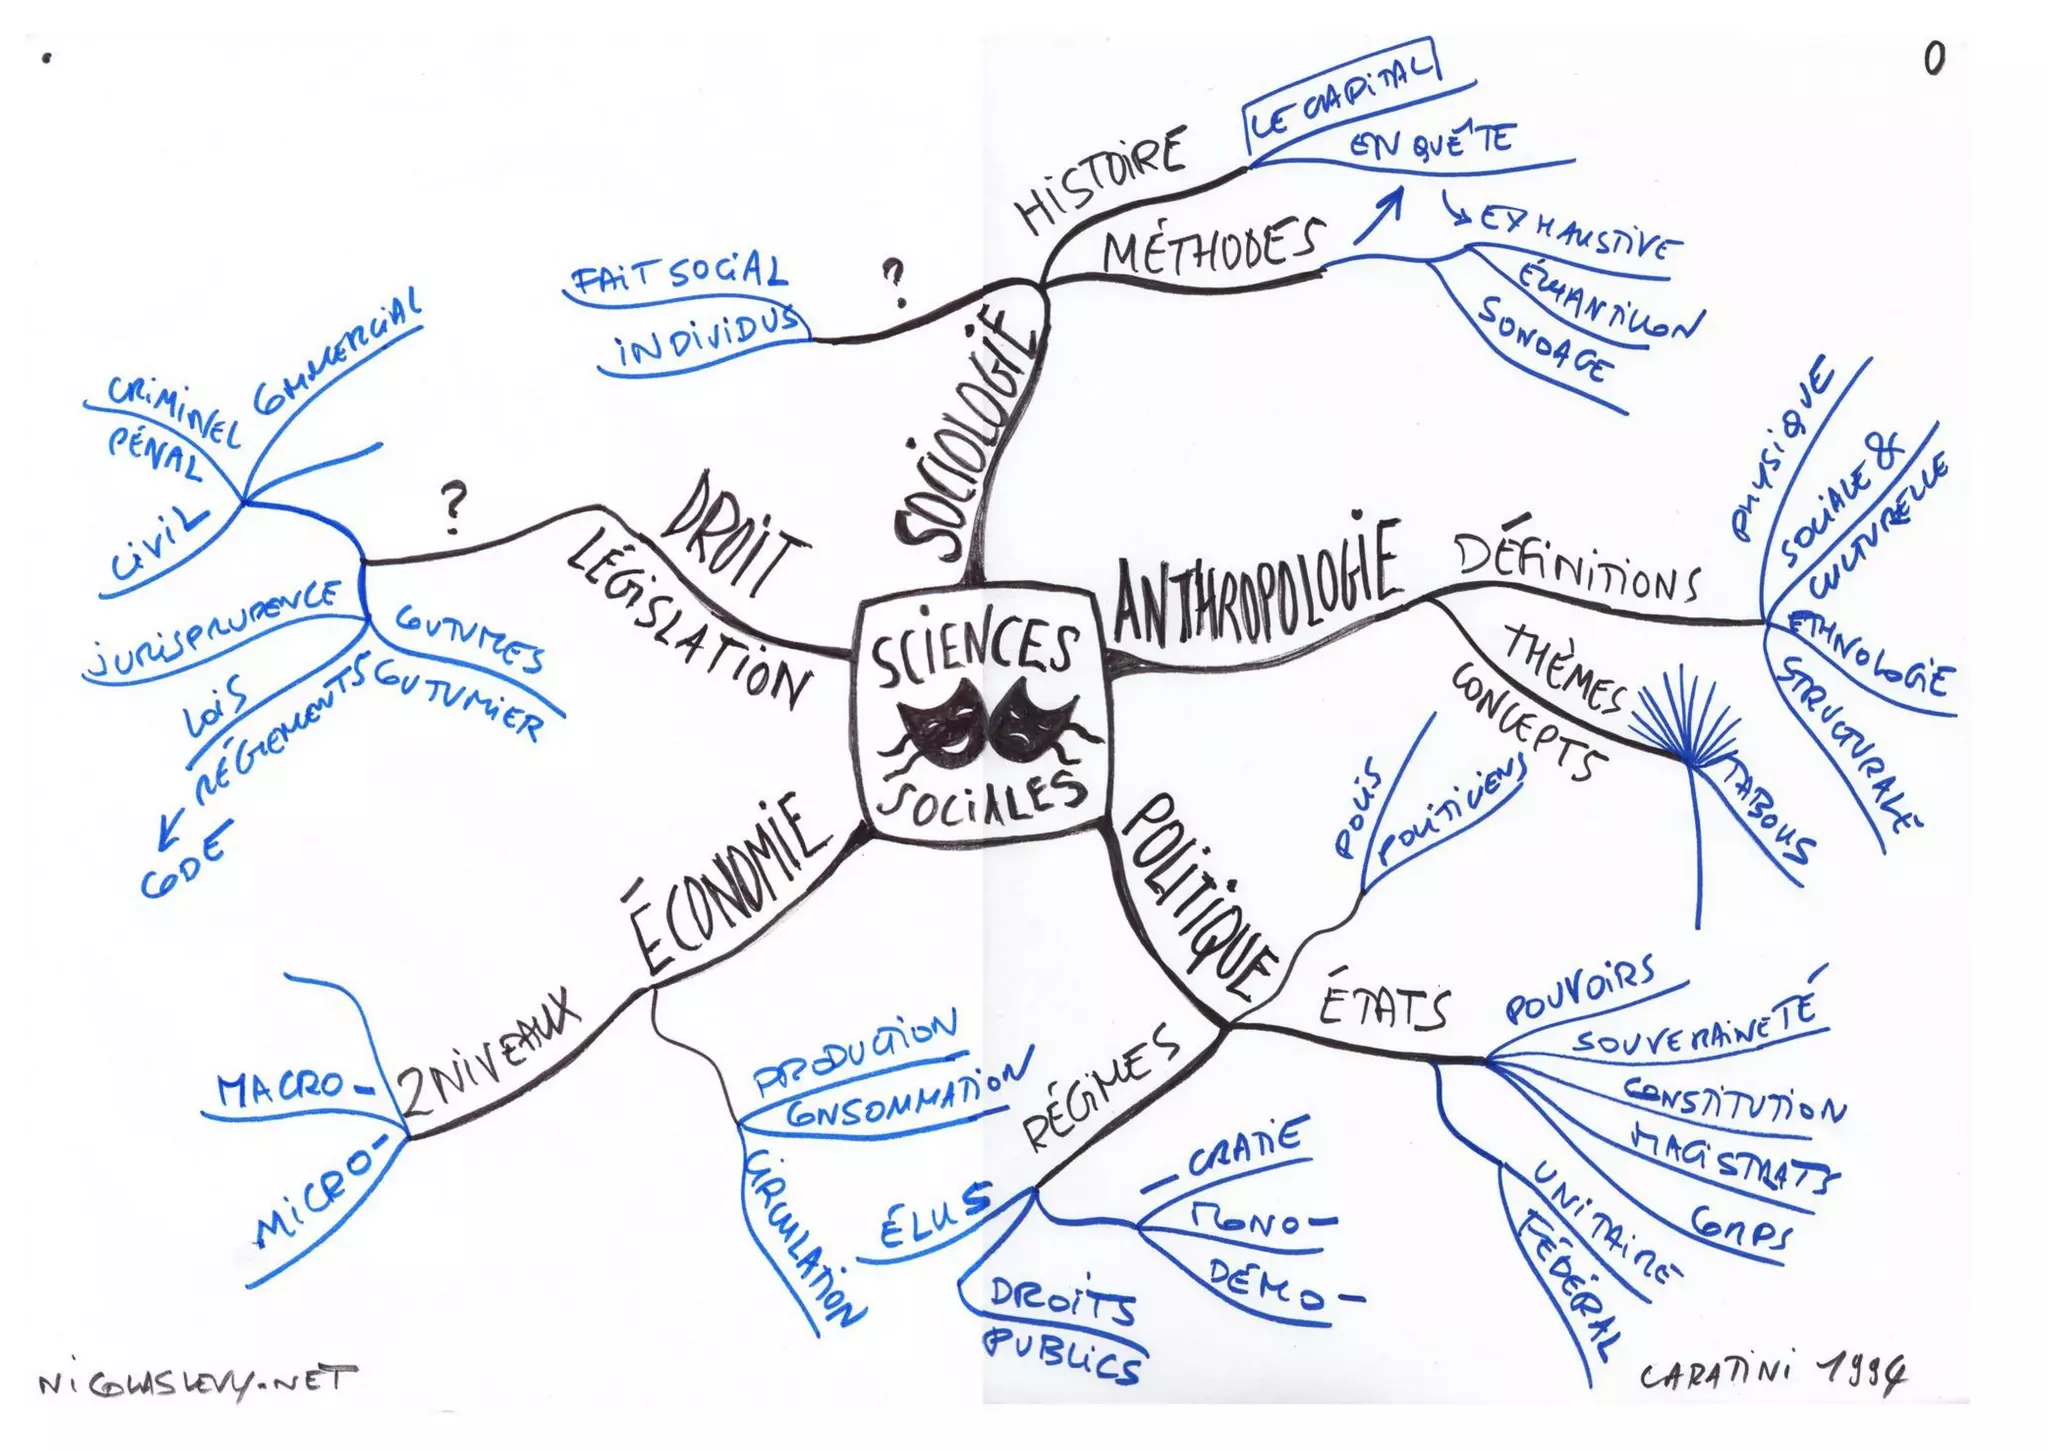 0
LE CAPITAL
ENQUÊTE
HISTOIRE
MÉTHODES
EXHAUSTIVE
ÉCHANTILLON
SONDAGE
?
FAIT SOCIAL
INDIVIDUS
SOCIOLOGIE
COMMERCIAL
CRIMINEL
PÉNAL
CIVIL
?
DROIT
LÉGISLATION
JURISPRUDENCE
COUTUMES
COUTUMIER
LOIS
RÉGLEMENTS
CODE
SCIENCES
SOCIALES
ANTHROPOLOGIE
DÉFINITIONS
PHYSIQUE
SOCIALE &
CULTURELLE
ETHNOLOGIE
STRUCTURALE
THÈMES
CONCEPTS
TABOUS
POLITIQUE
POLIS
POLITICIENS
ÉTATS
POUVOIRS
SOUVERAINETÉ
CONSTITUTION
MAGISTRATS
CORPS
UNITAIRE
FÉDÉRAL
RÉGIMES
-CRATIE
MONO-
DÉMO-
ÉLUS
DROITS
PUBLICS
ÉCONOMIE
2 NIVEAUX
MACRO-
MICRO-
PRODUCTION
CONSOMMATION
CIRCULATION
NICOLASLEVY.NET
CARATINI 1994